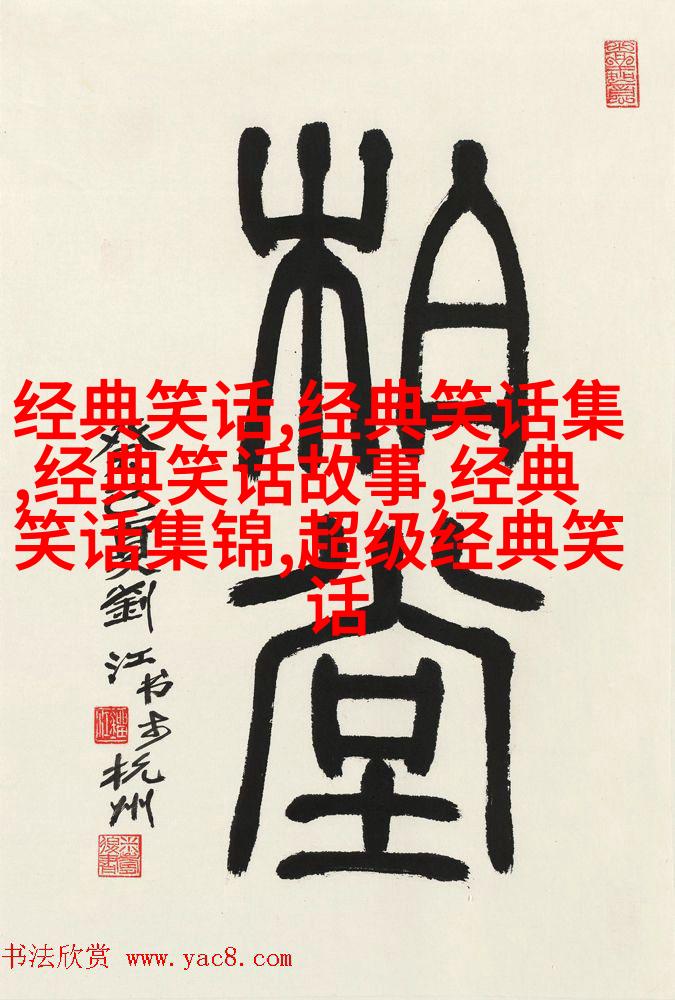 柏堂
癸巳夏劉江书于杭州
经典笑话,经典笑话集
,经典笑话故事,经典
笑话集锦,超级经典笑
话
书法欣赏 www.yac8.com